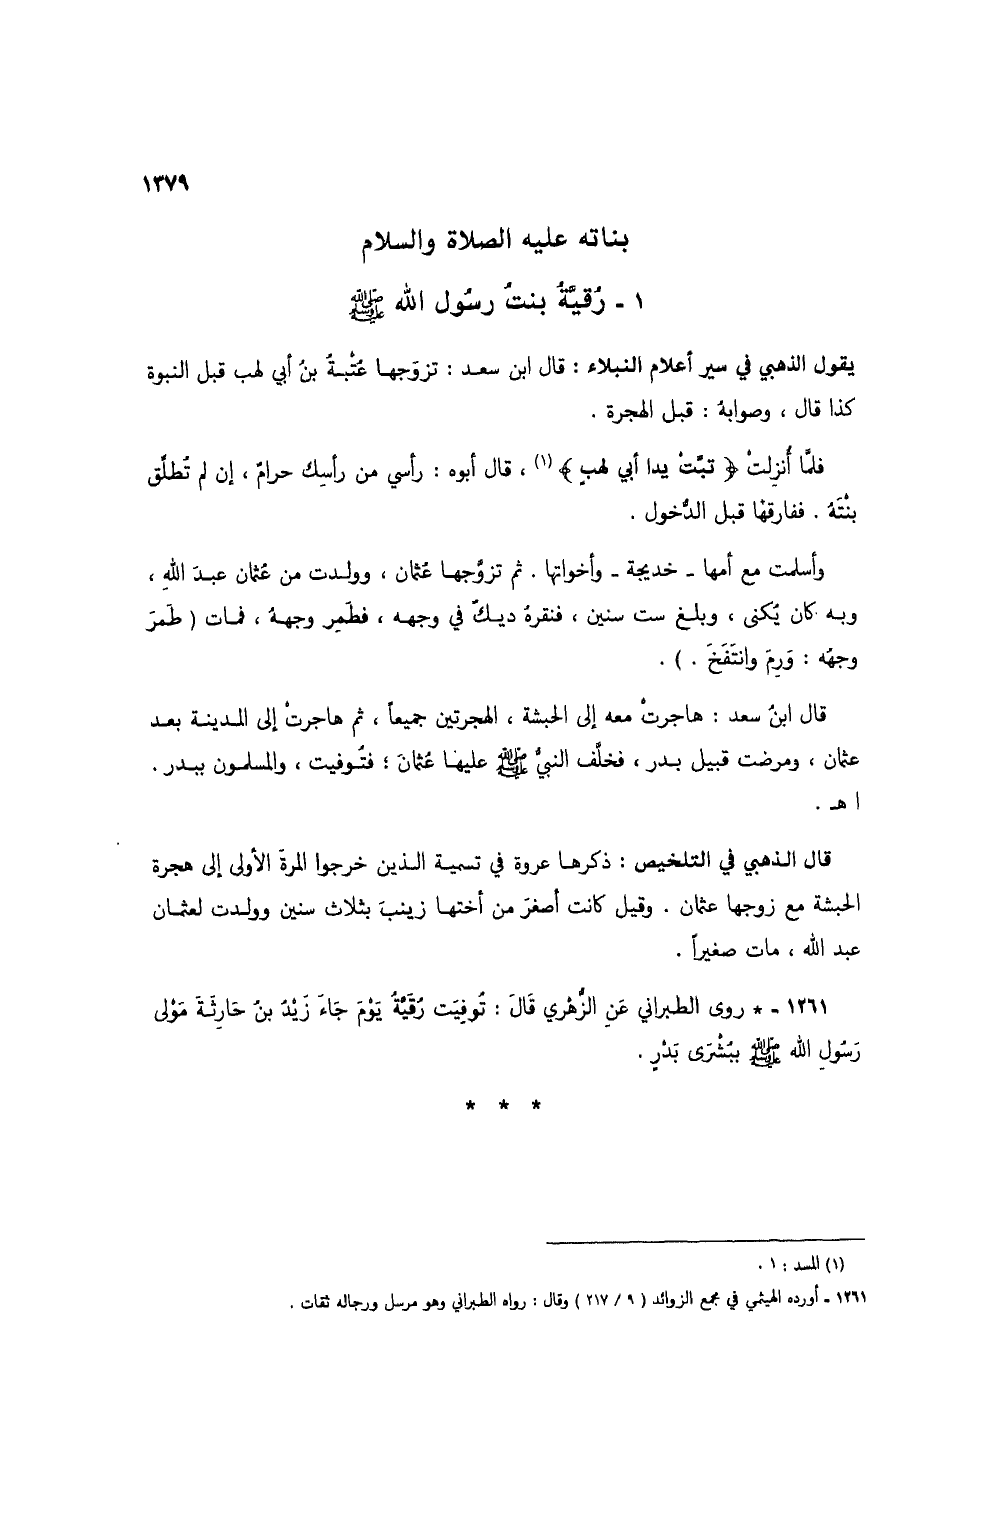 ١٣٧٩
بناته عليه الصلاة والسلام
١ - رُقيَّةُ بنتُ رسُول الله ﷺ
يقول الذهبي في سير أعلام النبلاء : قال ابن سعد : تزوَجها عُتْبةُ بنُ أبي لهب قبل النبوة
كذا قال ، وصوابهُ : قبل الهجرة .
فلمَّا أُنزِلتْ ﴿ تبَّتْ يدا أبي لهبٍ ﴾ (١) ، قال أبوه : رأسي من رأسِك حرامٌ ، إن لم تُطلَّق
بنْتَهُ . ففارقهْا قبل الدُّخول .
وأسلمت مع أمها - خديجة - وأخواتها . ثم تزوَّجها عُثمان ، وولدت من عُثمان عبدَ اللهِ ،
وبه كان يُكنى ، وبلغ ست سنين ، فنقرهُ ديكٌ في وجهه ، فطَمِر وجههُ ، فمات ( طَمَرَ
وجهُه : وَرِمَ وانتَفَخَ . ) .
قال ابنُ سعد : هاجرتْ معه إلى الحبشة ، الهجرتين جميعاً ، ثم هاجرتْ إلى المدينة بعد
عثمان ، ومرضت قبيل بدر ، فخلَّف النبيُّ ﷺ عليها عُثمانَ ؛ فتُوفيت ، والمسلمون ببدر .
ا هـ .
قال الذهبي في التلخيص : ذكرها عروة في تسمية الذين خرجوا المرةَ الأولى إلى هجرة
الحبشة مع زوجها عثمان . وقيل كانت أصغرَ من أختها زينبَ بثلاث سنين وولدت لعثمان
عبد الله ، مات صغيراً .
١٢٦١ - * روى الطبراني عَنِ الزُّهْري قَالَ : تُوفِيَت رُقَيَّةُ يَوْمَ جَاءَ زَيْدُ بنُ حَارِثَةَ مَوْلى
رَسُولِ الله ﷺ بِبُشْرَى بَدْرٍ .
* * *
(١) المسد : ١ .
١٢٦١ - أورده الهيثمي في مجمع الزوائد ( ٩ / ٢١٧ ) وقال : رواه الطبراني وهو مرسل ورجاله ثقات .